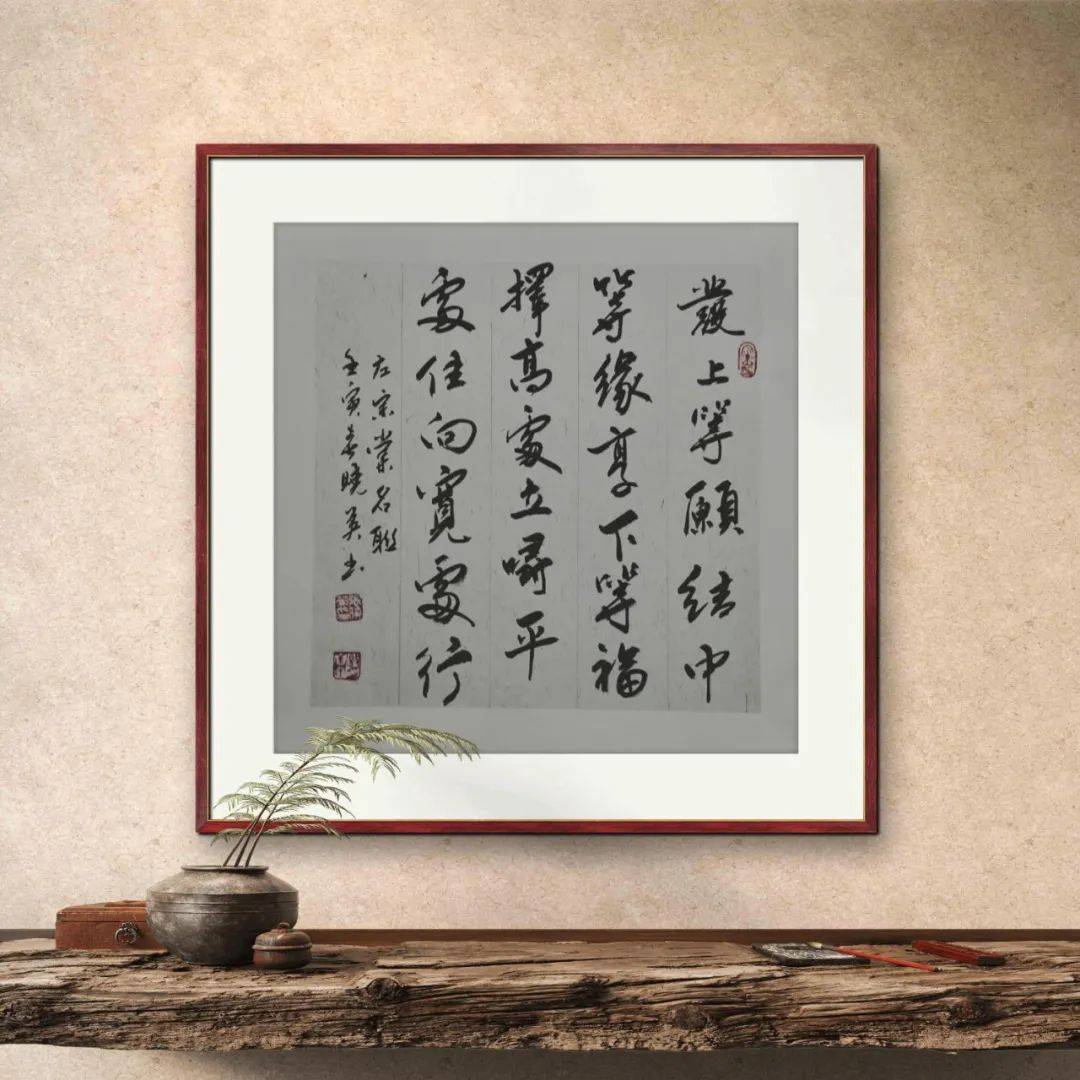 發上等願結中
等緣享下等福
擇高處立尋平
處住向寬處行
左宗棠名聯
壬寅春曉英书